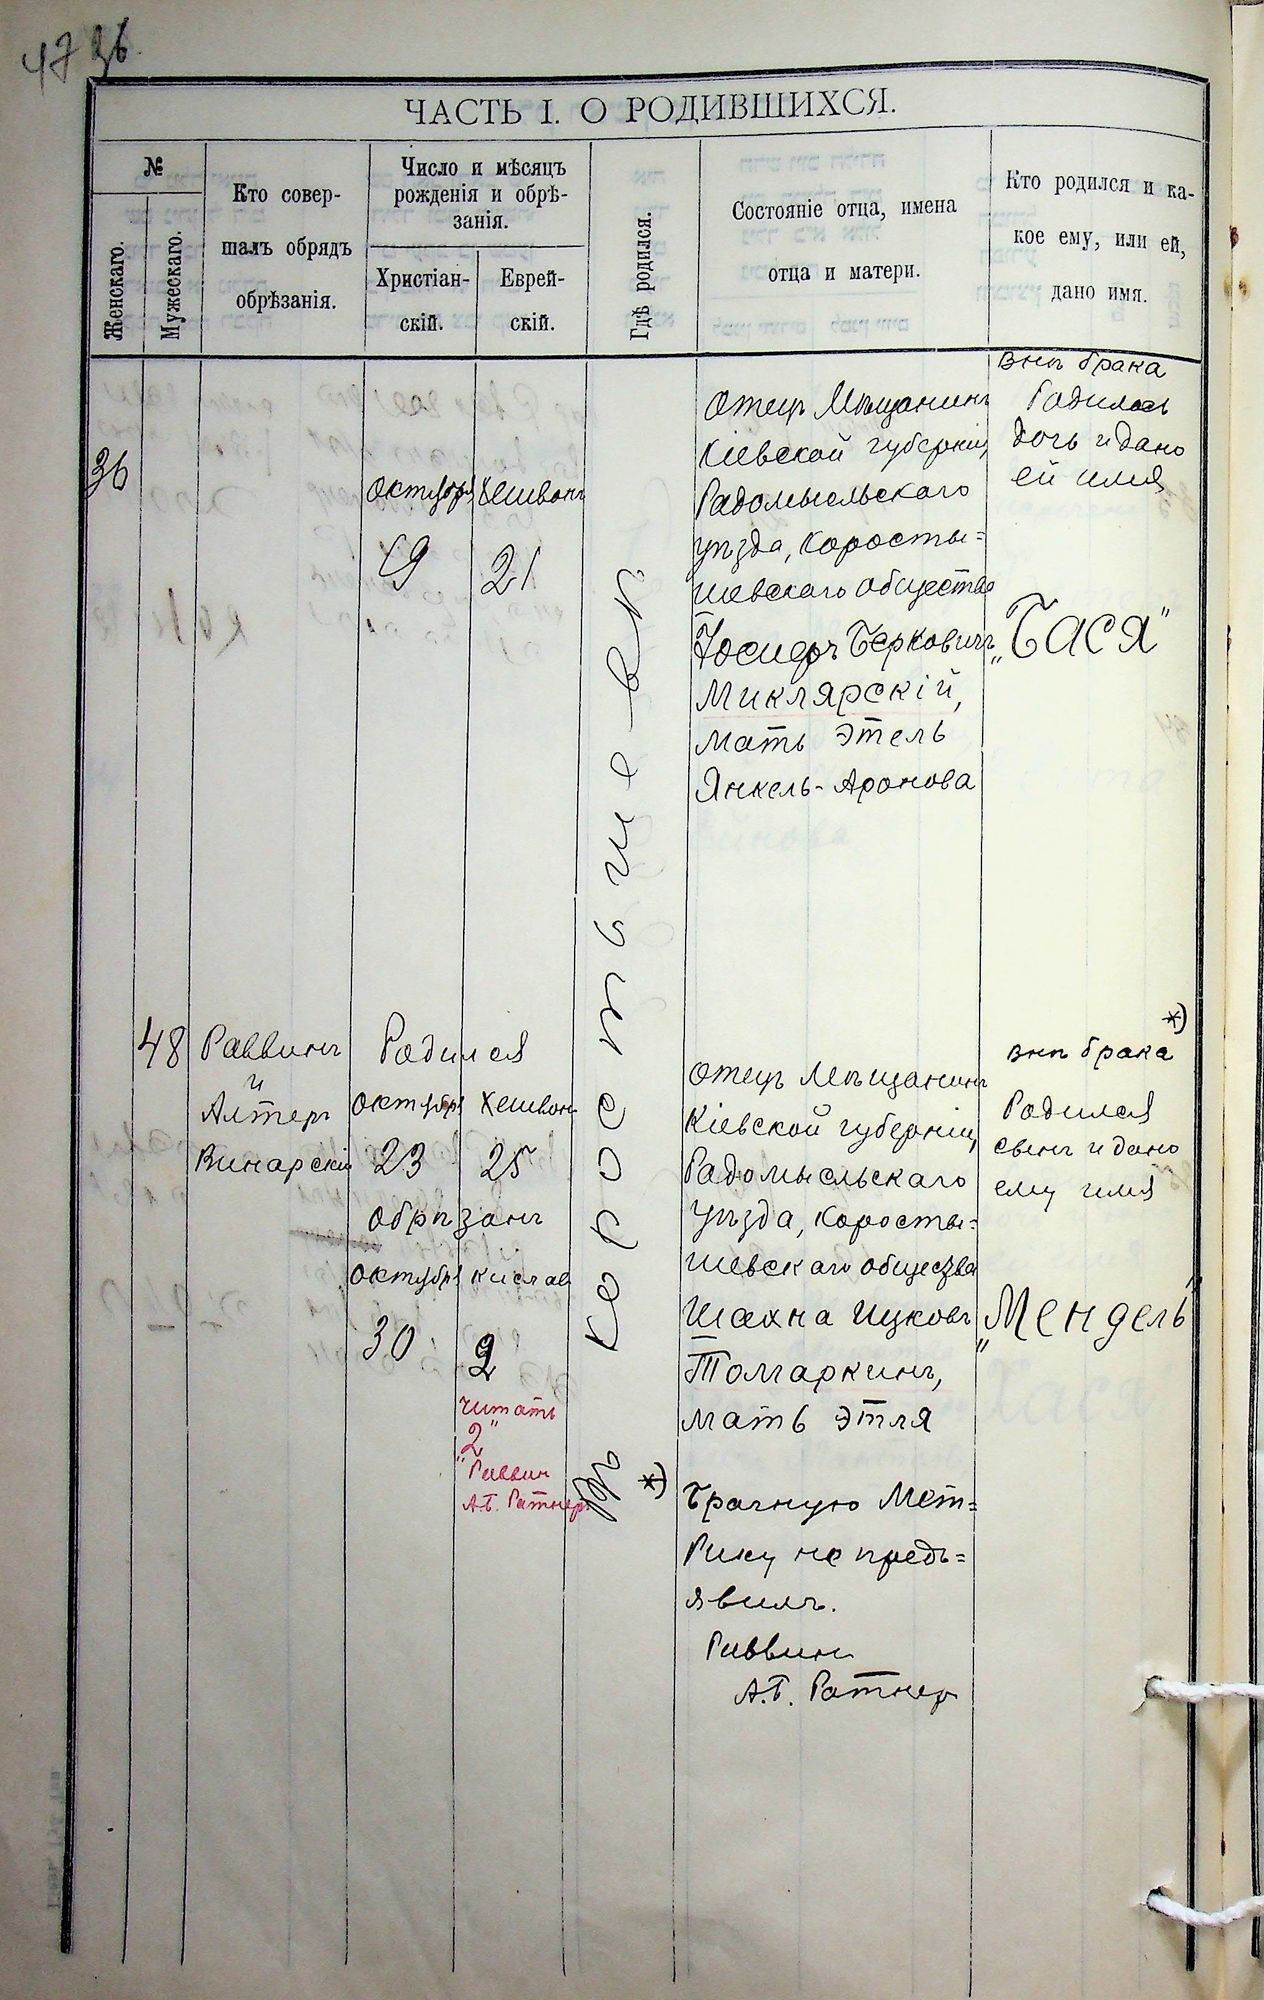 47 36.
ЧАСТЬ I. О РОДИВШИХСЯ.
№
Женскаго.
Мужескаго.
Кто совер-
шалъ обрядъ
обрѣзанія.
Число и мѣсяцъ
рожденія и обрѣ-
занія.
Христіан-
скій.
Еврей-
скій.
Гдѣ родился.
Состояніе отца, имена
отца и матери.
Кто родился и ка-
кое ему, или ей,
дано имя.
36
Октября
19
Хешвонъ
21
Въ Коростышевѣ
Отецъ Мѣщанинъ
Кіевской губерніи,
Радомысльскаго
уѣзда, Коросты=
шевскаго общества
Іосифъ Берковичъ
Миклярскій,
мать Этель
Янкель-Аронова
внѣ брака
Родилась
дочь и дано
ей имя
„Бася"
48
Раввинъ
и
Алтеръ
Винарскій
Родился
Октября Хешвонъ
23 25
Обрѣзанъ
Октября Кислав
30 2
читать
„2"
Раввин
А.Б. Ратнер.
Отецъ Мѣщанинъ
Кіевской губерніи,
Радомысльскаго
Уѣзда, Коросты=
шевскаго общества
Шахна Ицковъ
Толмаркинъ,
мать Этля
*)
Брачную Мет=
рику не предъ=
явилъ.
Раввин
А.Б. Ратнер
*)
внѣ брака
Родился
сынъ и дано
ему имя
„Мендель"